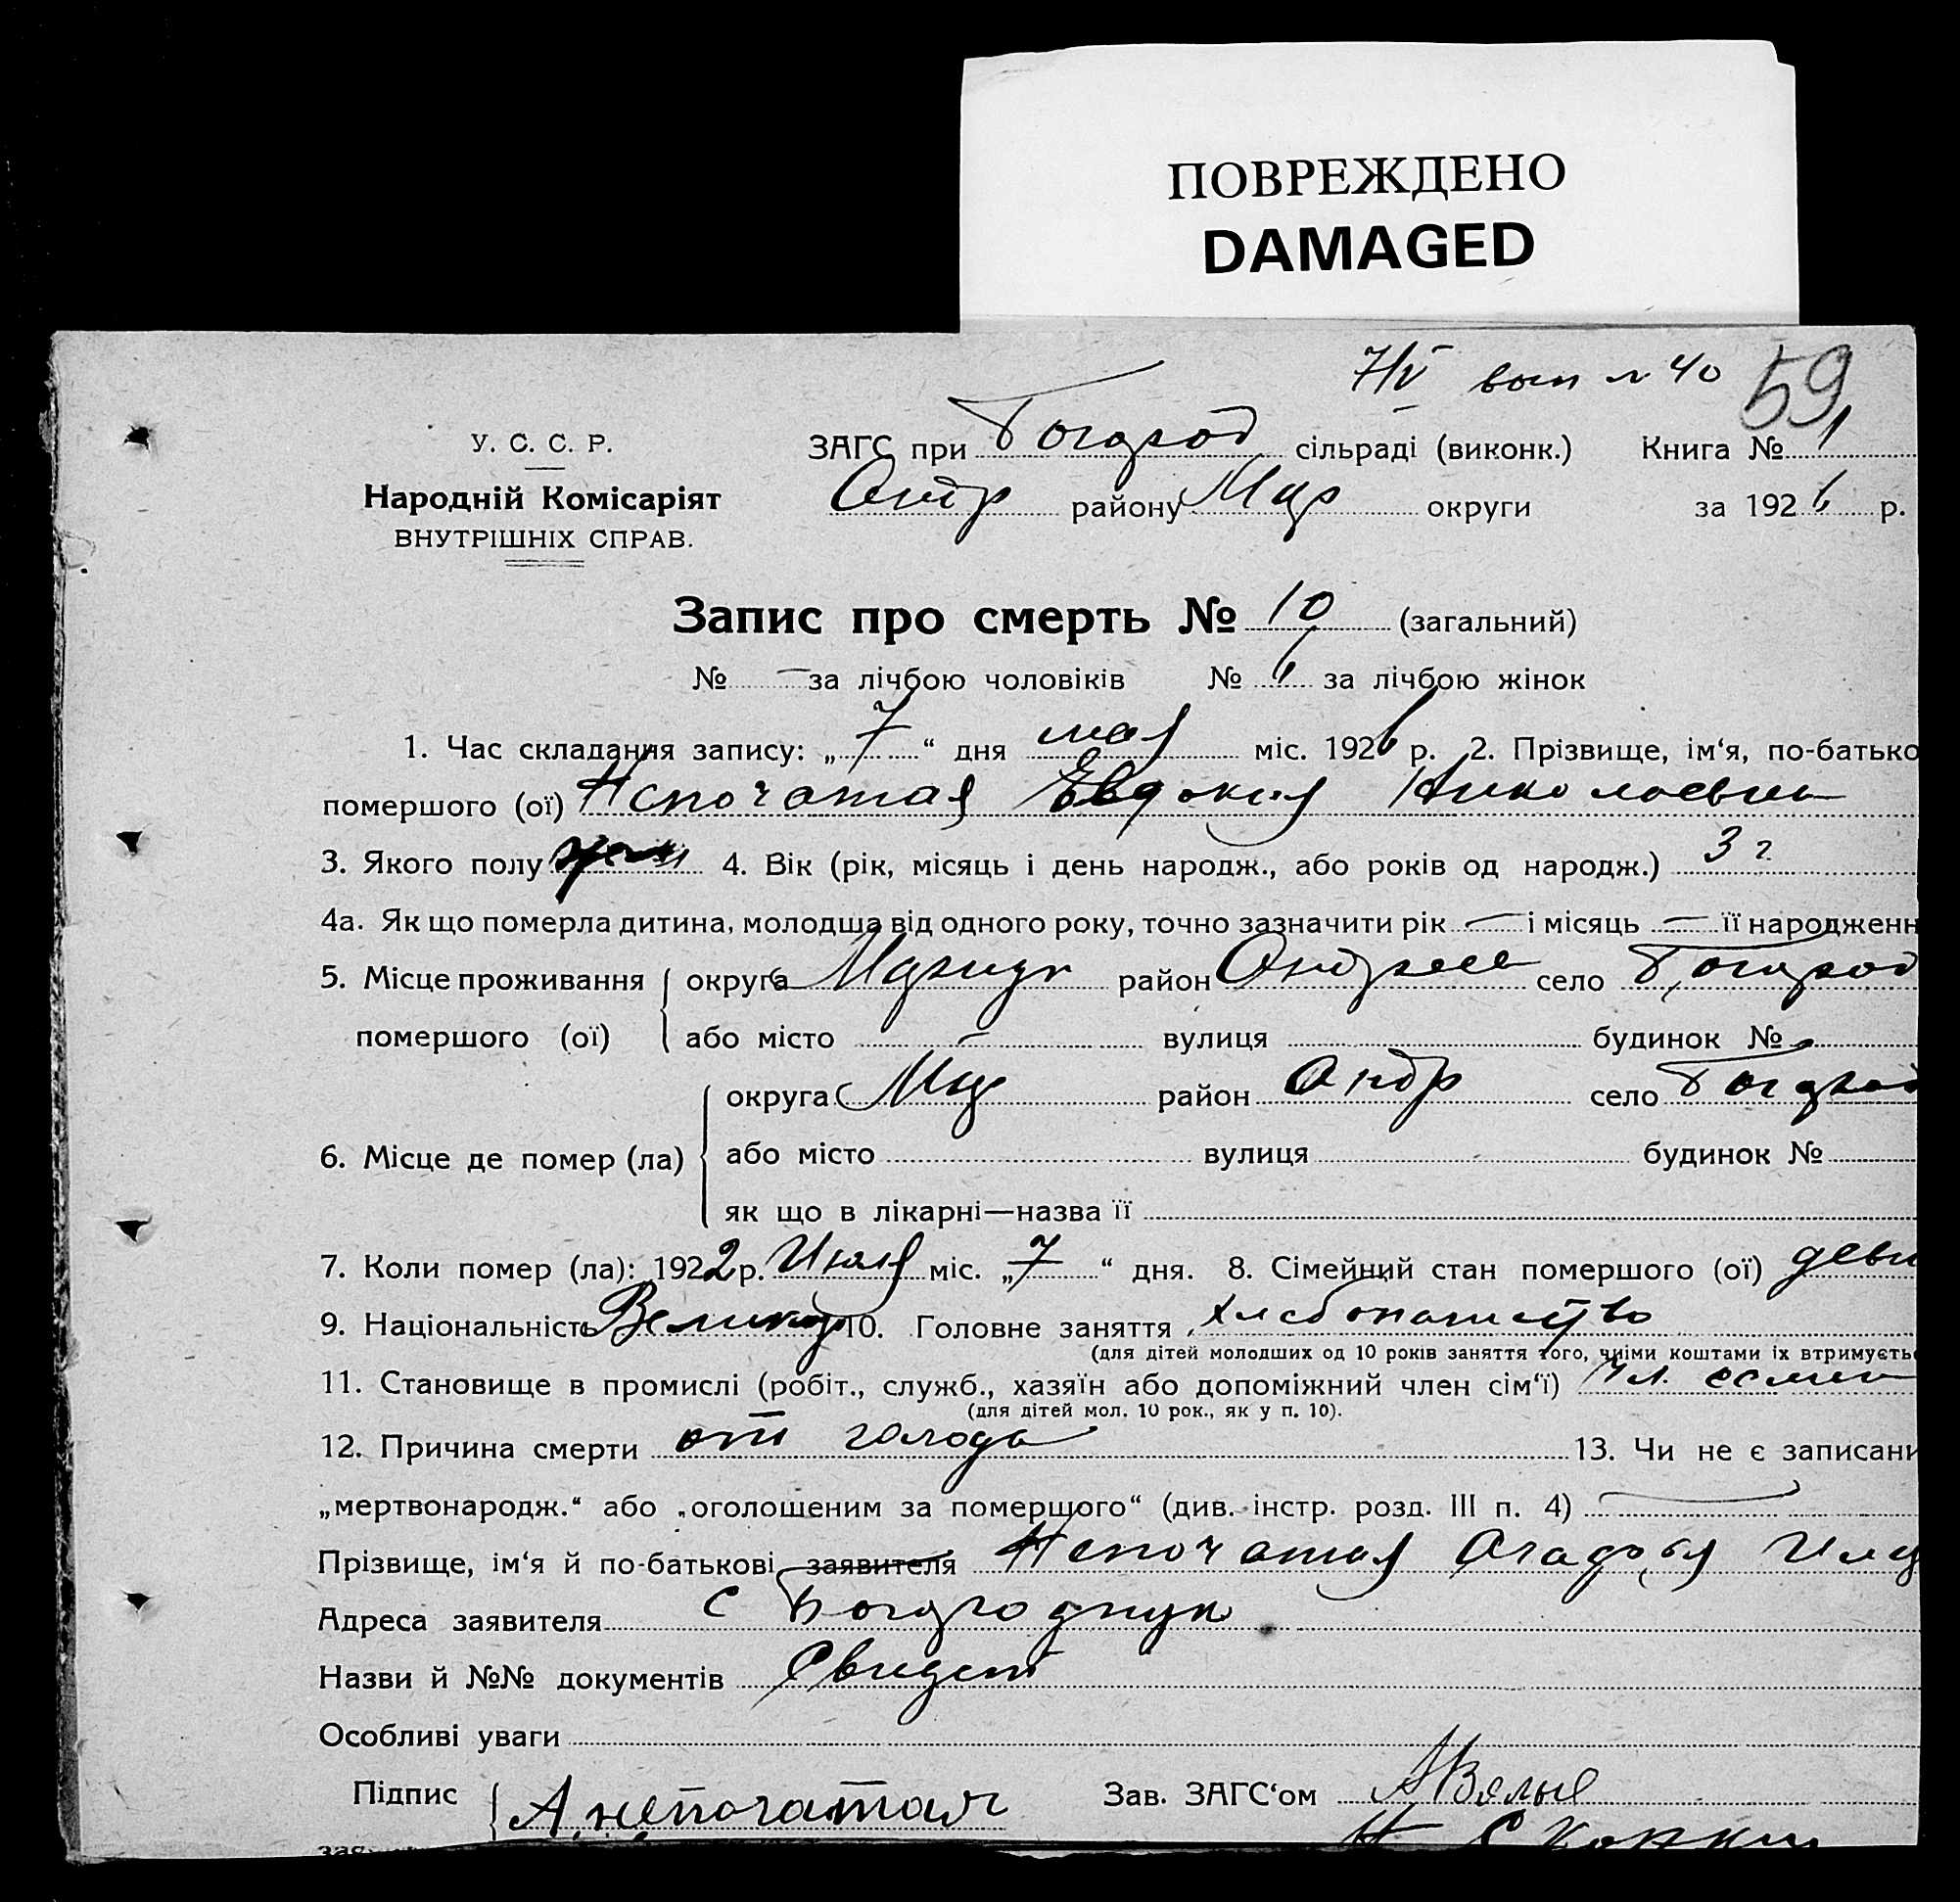 ПОВРЕЖДЕНО
DAMAGED
7/V вып № 40 59
У. С. С. Р.
ЗАГС при Богород сільраді (виконк.) Книга № 1
Народній Комісаріят
Андр району Мар округи за 1926 р.
ВНУТРІШНІХ СПРАВ.
Запис про смерть № 10 (загальний)
№ — за лічбою чоловіків № 6 за лічбою жінок
1. Час складання запису: „7“ дня мая міс. 1926 р. 2. Прізвище, ім‘я, по-батько
помершого (ої) Непочатая Евдокия Николаевна
3. Якого полу жен 4. Вік (рік, місяць і день народж., або років од народж.) 3 г
4а. Як що померла дитина, молодша від одного року, точно зазначити рік — і місяць — її народженн
5. Місце проживання округа Мариуп район Андреев село Богород
помершого (ої) або місто вулиця будинок №
округа Мар район Андр село Богород
6. Місце де помер (ла) або місто вулиця будинок №
як що в лікарні—назва її
7. Коли помер (ла): 1922 р. Июля міс. „7“ дня. 8. Сімейний стан помершого (ої) деви
9. Національність Великор 10. Головне заняття хлебопашество
(для дітей молодших од 10 років заняття того, чиїми коштами їх втримуєтьс
11. Становище в промислі (робіт., служб., хазяїн або допоміжний член сім‘ї) чл. семьи
(для дітей мол. 10 рок., як у п. 10).
12. Причина смерти от голода 13. Чи не є записани
„мертвонародж.“ або „оголошеним за померщого“ (див. інстр. розд. III п. 4) —
Прізвище, ім‘я й по-батькові заявителя Непочатая Агафья
Адреса заявителя с
Назви й №№ документів Свидет
Особливі уваги
Підпис А. непочатая Зав. ЗАГС‘ом